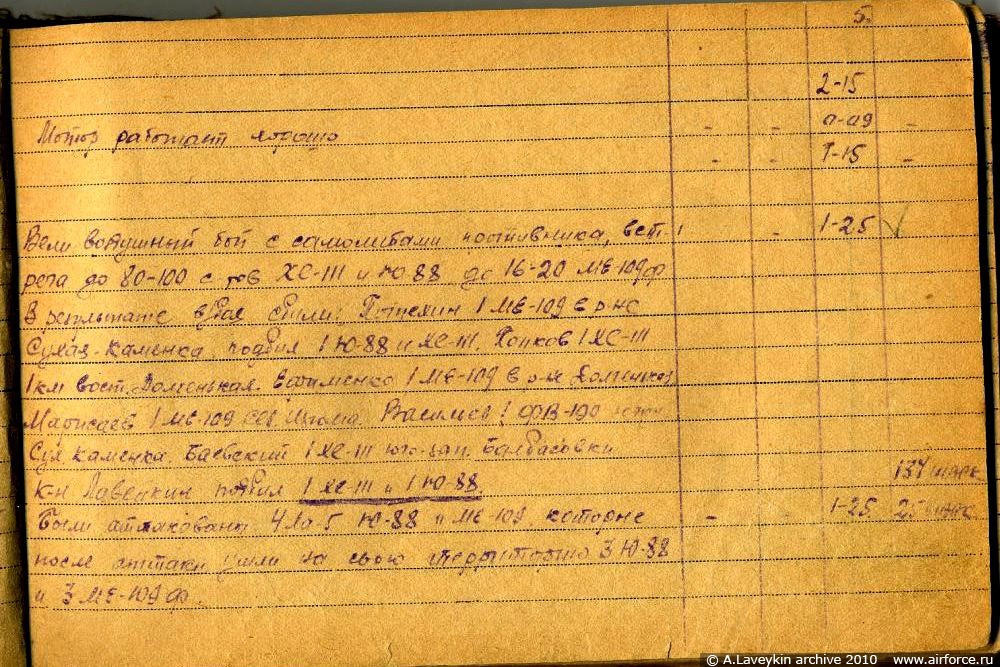 5.
2-15
Мотор работает хорошо - - 0-49 -
- - 1-15 -
Вели воздушный бой с самолетами противника, вст- - 1-25
реча до 80-100 с-тов ХЕ-111 и Ю-88 до 16-20 МЕ-109ф
В результате боя сбили: 1 МЕ-109 в р-не
Сухая-Каменка подбил 1 Ю-88 и ХЕ-111. Попков 1 ХЕ-111
1 км вост. Ефименко 1 МЕ-109 в р-не
1 МЕ-109 1 ФВ-190
Сух Каменка. Баевский 1 ХЕ-111 юго-зап. Барбасовки
к-н Лавейкин подбил 1 ХЕ-111 и 1 Ю-88
Были атакованы 4 Ла-5 Ю-88 и МЕ-109 которые - - 1-25
после аттаки ушли на свою территорию 3 Ю-88
и 3 МЕ-109 ф.
© A.Laveykin archive 2010 www.airforce.ru